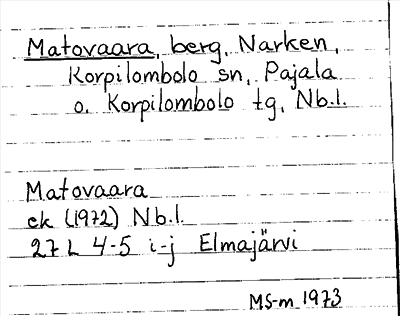 Matovaara, berg, Narken,
Korpilombolo sn, Pajala
o. Korpilombolo tg, Nb.l.
Matovaara
ek (1972) Nb.l.
27 L 4-5 i-j Elmajärvi
MS-m 1973